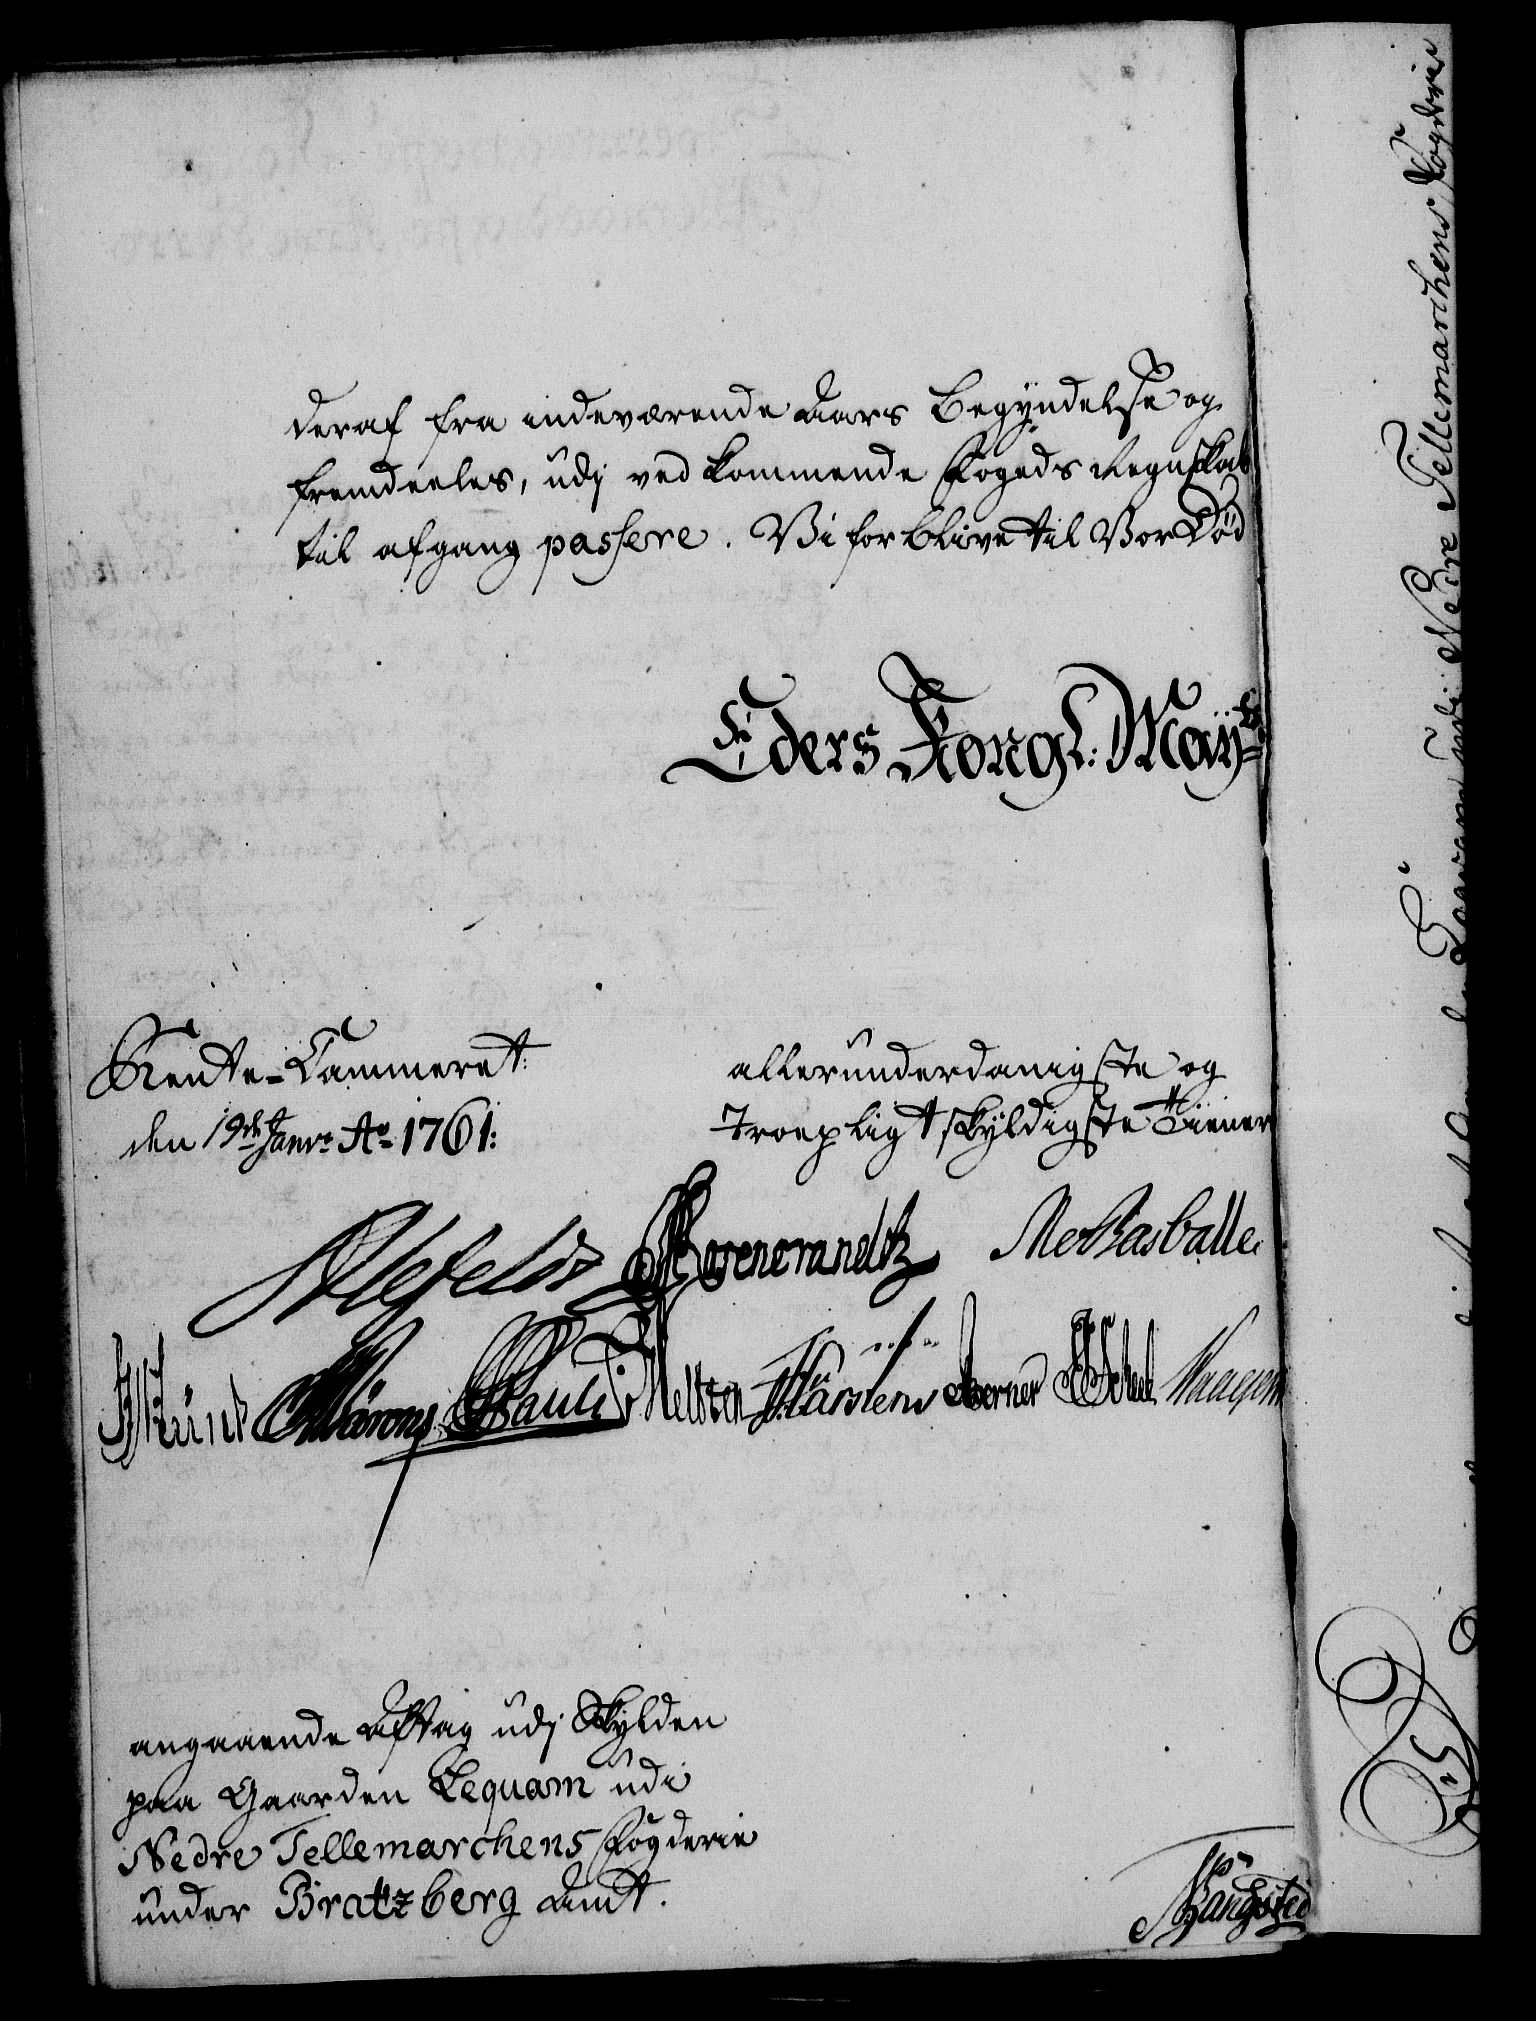 deraf fra indeværende Aars Begyndelse og
fremdeeles, udj vedkommende Fogeds Regnskab
til afgang passere. Vi forblive til Vor Død
Eders Kongl: May:ts
Rente-Cammeret:
den 19de Janr: Ao 1761:
allerunderdanigste og
Troepligtskyldigste Tiener
Alefeldt Rosencrandtz
Pauli Kärsten Berner
angaaende Aftag udj Skylden
paa Gaarden Lequam udi
Nedre Tellemarchens Fogderie
under Bratzberg Amt.
Bangsted
udi Nedre Tellemarchens Fogderie